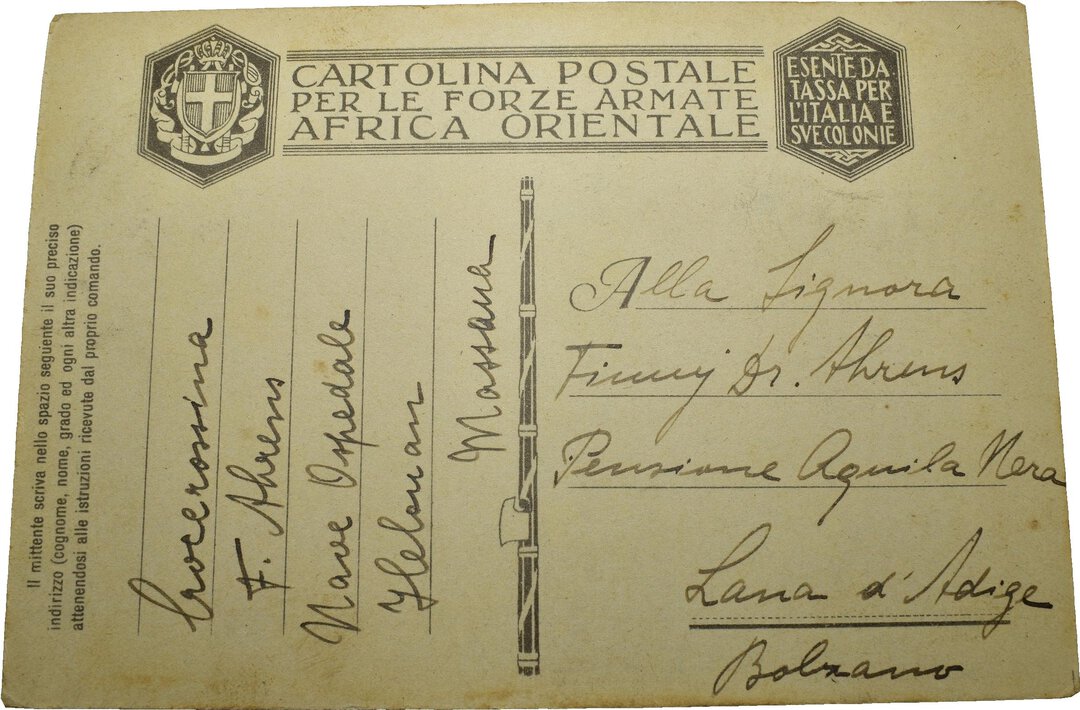 CARTOLINA POSTALE
PER LE FORZE ARMATE
AFRICA ORIENTALE
ESENTE DA
TASSA PER
L'ITALIA E
SVE COLONIE
Il mittente scriva nello spazio seguente il suo preciso
indirizzo (cognome, nome, grado ed ogni altra indicazione)
attenendosi alle istruzioni ricevute dal proprio comando.
Crocerossina
F. Ahrens
Nave Ospedale
Helouan
Massaua
Alla Signora
Finny Dr. Ahrens
Pensione Aquila Nera
Lana d'Adige
Bolzano